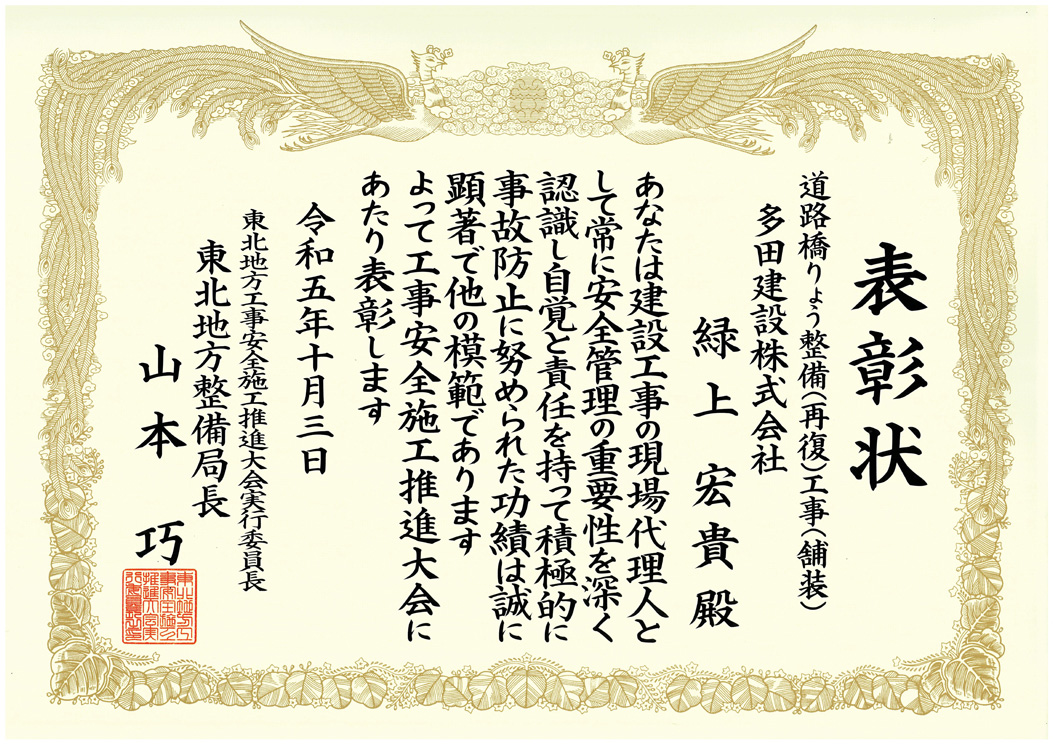 表彰状
道路橋りょう整備(再復)工事(舗装)
多田建設株式会社
緑上宏貴殿
あなたは建設工事の現場代理人と
して常に安全管理の重要性を深く
認識し自覚と責任を持って積極的に
事故防止に努められた功績は誠に
顕著で他の模範であります
よって工事安全施工推進大会に
あたり表彰します
令和五年十月三日
東北地方工事安全施工推進大会実行委員長
東北地方整備局長
山本巧